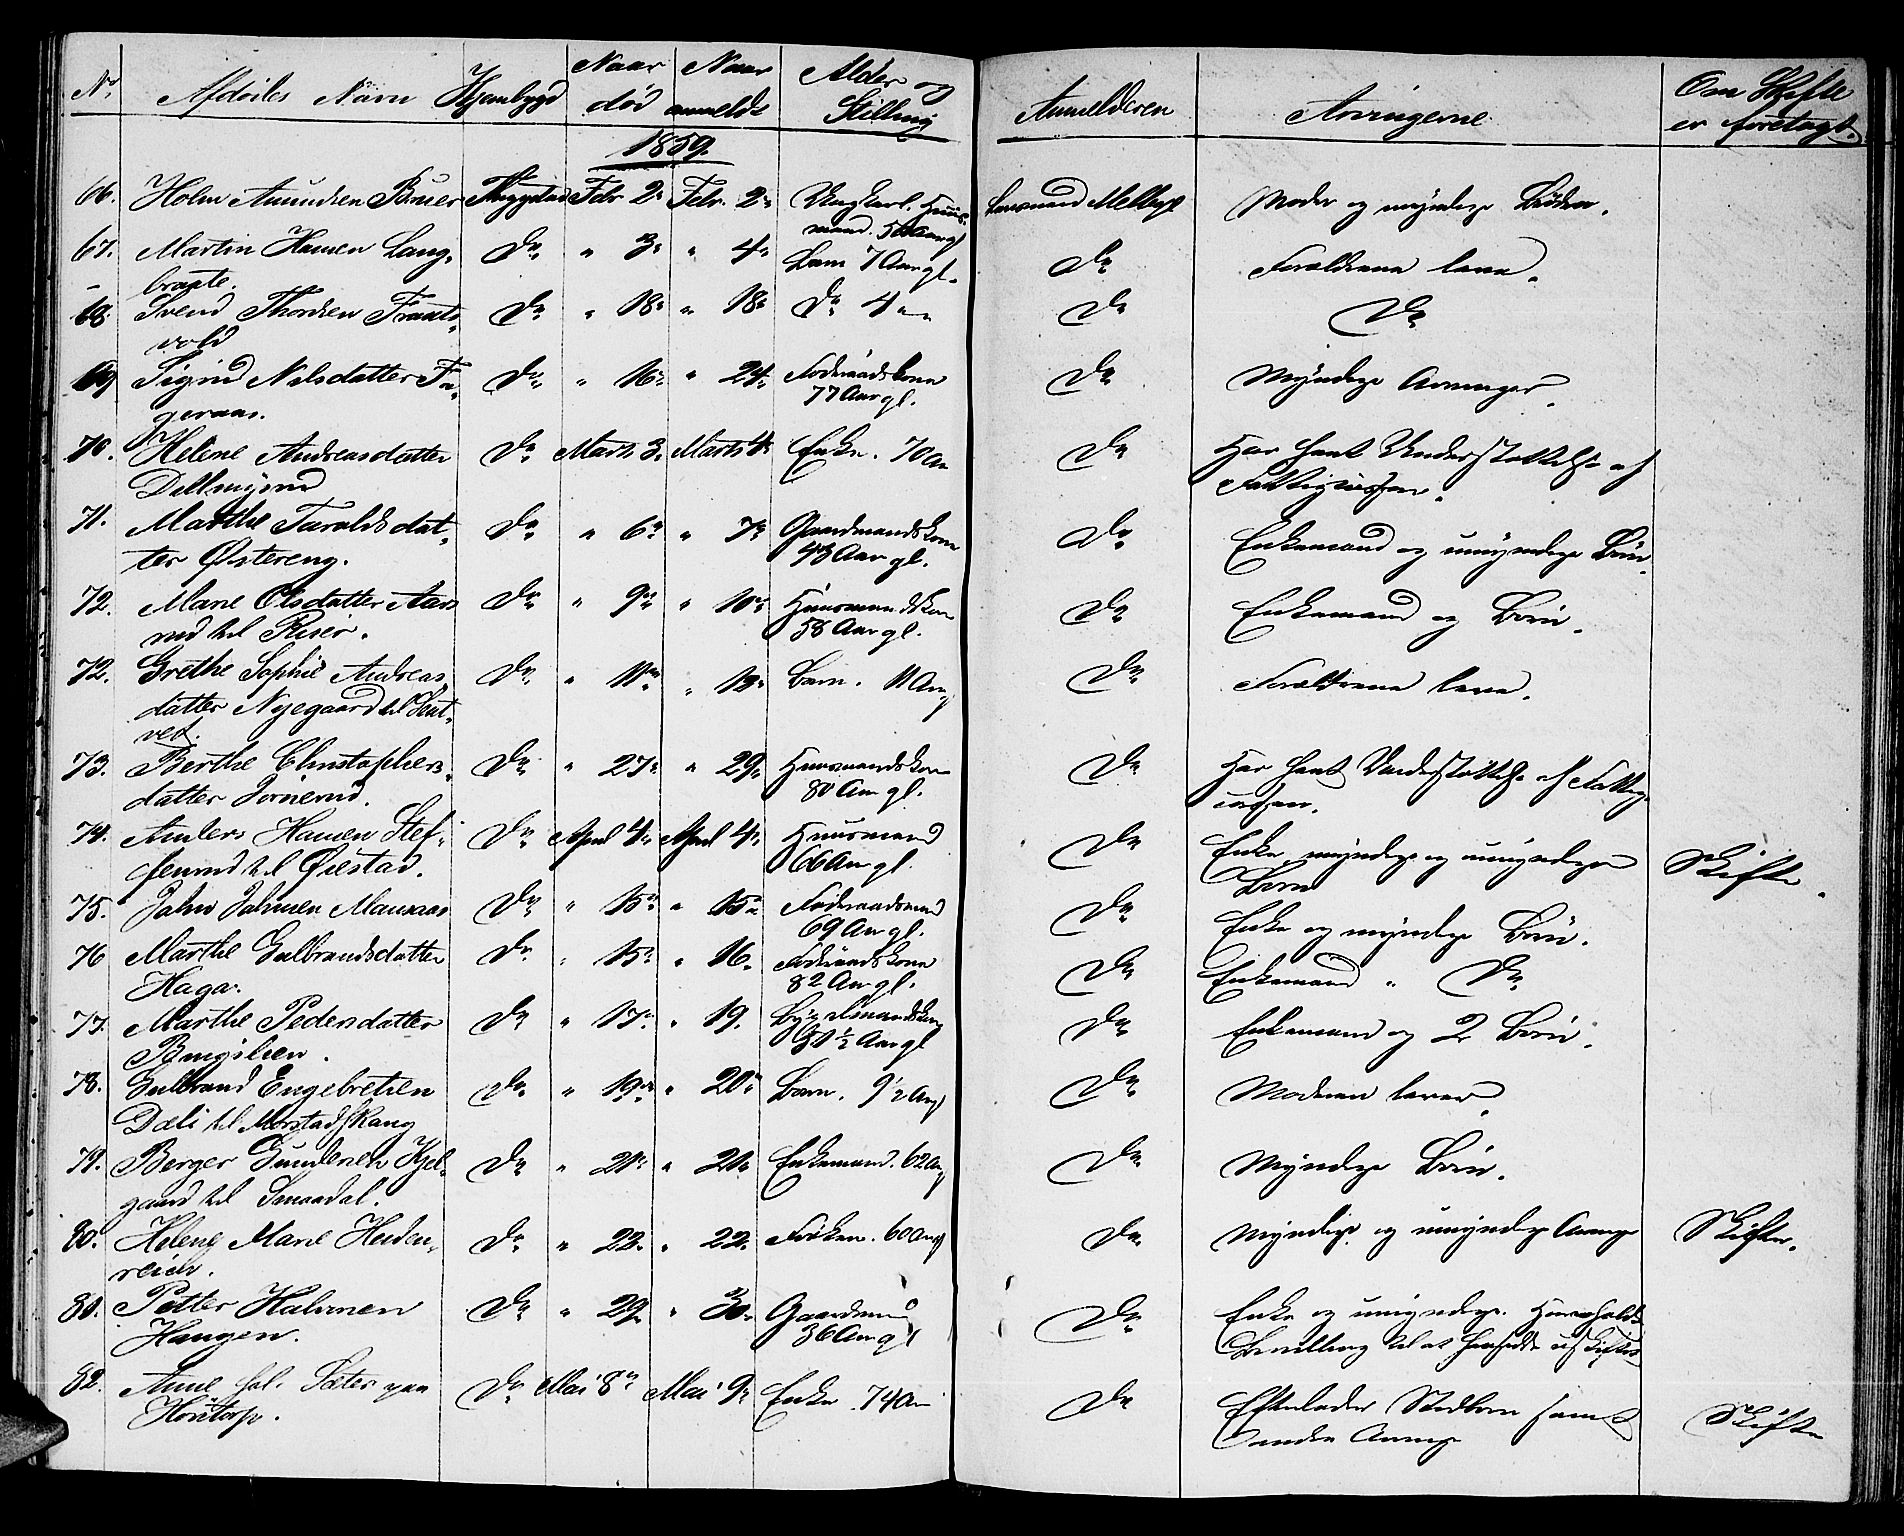 No. Afdødes Navn Hjembygd Naar død Naar anmeldt Alder og Stilling Anmelderen Arvingerne Om Skifte er foretaget.
1859.
66. Holm Amundsen Febr 2 Febr. 2 Ungkarl. Huusmand. 50 Aar gl Lensmand Melbye Moder og myndige Sødsk.
67. Martin Hansen Langbraate. Do 3 4 Barn 7 Aar gl. Do Forældrene leve.
68 Svend Thordsen Do 18 18 Do 4 Do Do
69 Sigrid Nelsdatter Fageraas. Do 16 24 Føderaadskone 77 Aar gl. Do Myndige Arvinger.
70. Helene Andreasdatter Do Marts 3. Marts 4 Enke. 70 Aar Do Har havt Understøttelse af Fattigcassen.
71. Marthe Taraldsdatter Østereng. Do 6 7 Gaardmandskone 43 Aar gl. Do Enkemand og umyndige Børn.
72. Marie Olsdatter Aasrud til Riser. Do 9 10 Huusmandskone 58 Aar gl. Do Enkemand og Børn.
72. Grethe Sophie Andreasdatter Nyegaard til Do 11 13 Barn. 11 Aar Do Forældrene leve.
73. Berthe Christophersdatter Do 27 29 Huusmandskone 80 Aar gl. Do Har havt Understøttelse af Fattigcassen.
74. Anders Hansen Steffenrud til Øiestad. Do April 4 April 4 Huusmand 66 Aar gl Do Enke, myndige og umyndige Børn Skifte.
75. John Johnsen Do 15 15 Føderaadsmand 69 Aar gl. Do Enke og myndige Børn.
76 Marthe Gulbrandsdatter Haga. Do 15 16 Føderaadskone 82 Aar gl. Do Enkemand " Do
77. Marthe Pedersdatter Do 17 19. 31 ½ Aar gl Do Enkemand og 2 Børn.
78. Gulbrand Engebretsen Dæli til Morstadskang Do 19 20 Barn. 9 ½ Aar Do Moderen lever.
79. Berger Gundersen Kjelgaard til Smaadal. Do 20 20 Enkemand. 62 Aar Do Myndige Børn.
80. Helene Marie Heidenreich. Do 22. 22. Frøken. 60 Aar Do Myndige og umyndige Arvinger Skifte.
81. Petter Halvorsen Haugen. Do 29 30 Gaardmand 36 Aar gl Do Enke og umyndige. Bevilling til at hensidde i uskiftet
82. Anne Sæter paa Do Mai 8 Mai 9 Enke 74 Aar Do Efterlader Stedbørn samt andre Arvinger Skifte